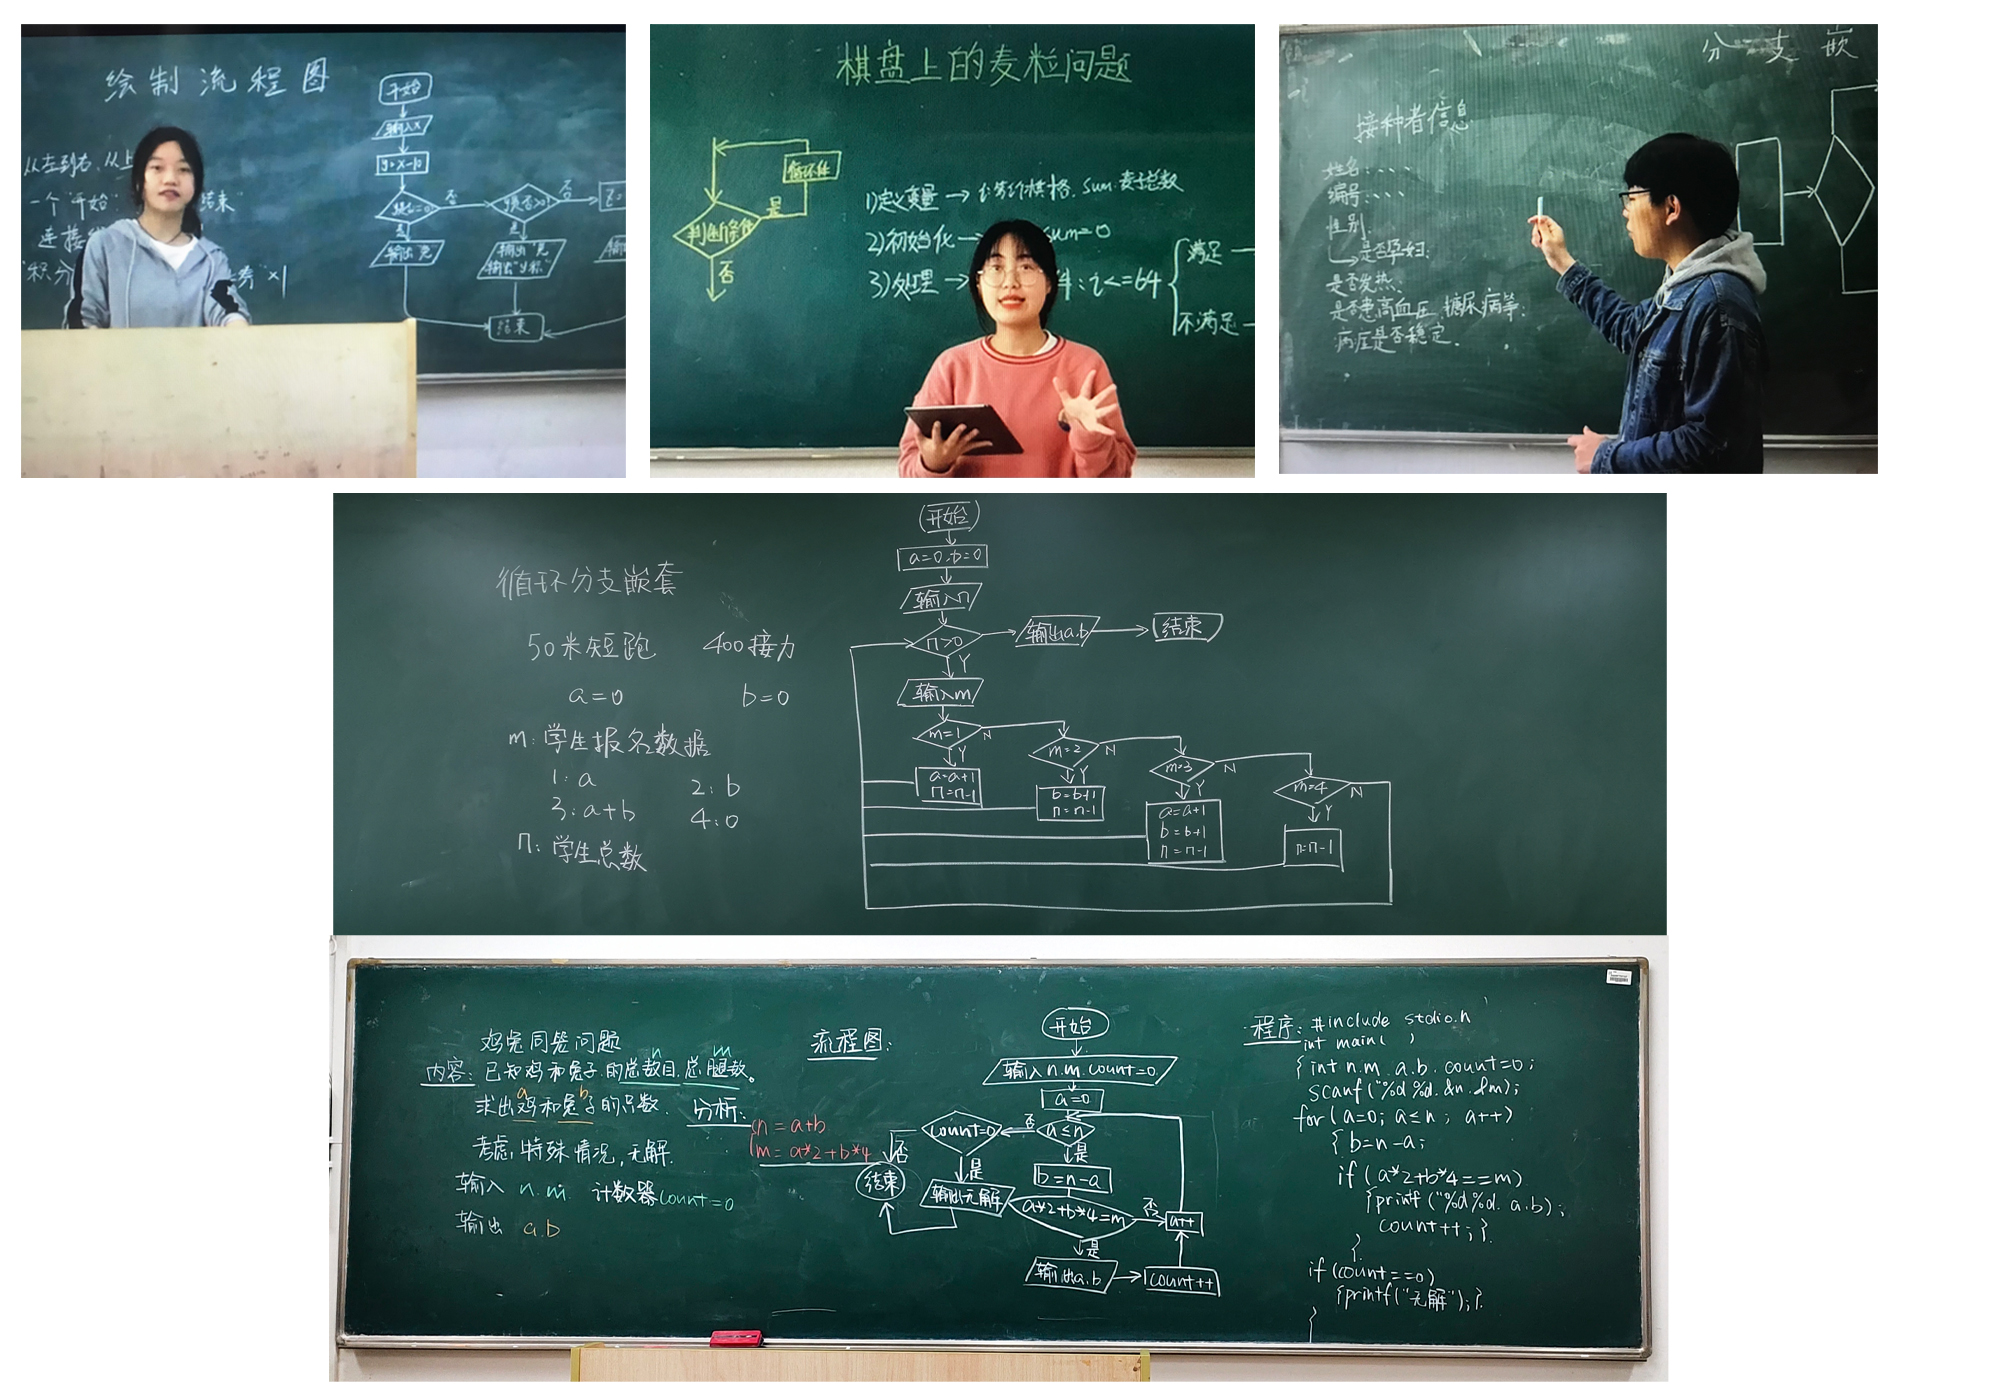 绘制流程图
开始
输入x
y=x-10
否
否
是
是
输出"完
输出"完
结束
从左到右、从上
一个"开始"
结束"
"积分
券"×1
棋盘上的麦粒问题
循环体
判断条件
是
否
1)定义变量→
sum:麦子总数
2)初始化→
sum=0
3)处理→
件:i<=64
满足
不满足
分支嵌
接种者信息
姓名:、、、、
编号:、、、
性别.
是否孕妇:
是否发热、
是否患高血压、糖尿病等:
病症是否稳定.
循环分支嵌套
50米短跑 400接力
a=0 b=0
m:学生报名数据
1:a 2:b
3:a+b 4:0
n:学生总数
开始
a=0.b=0
输入n
n>0
输出a.b
结束
Y
输入m
m=1
N
m=2
N
m=3
N
m=4
N
Y
Y
Y
Y
a=a+1
n=n-1
b=b+1
n=n-1
a=a+1
b=b+1
n=n-1
n=n-1
鸡兔同笼问题
n m
内容:已知鸡和兔子的总数目.总腿数。
a b
求出鸡和兔子的只数.
考虑特殊情况,无解.
输入 n.m. 计数器count=0
输出 a.b
分析:
n=a+b
m=a*2+b*4
流程图:
开始
输入n.m.count=0.
a=0
a≤n
否
count=0
否
结束
是
输出无解
是
b=n-a
a*2+b*4=m
否
a++
是
输出a.b
count++
程序:#include stdio.h
int main( )
{int n.m.a.b.count=0;
scanf("%d%d.&n.&m);
for(a=0; a≤n; a++)
{b=n-a;
if(a*2+b*4==m)
{printf("%d%d.a.b);
count++;}
}
if(count==0)
{printf("无解");}
}